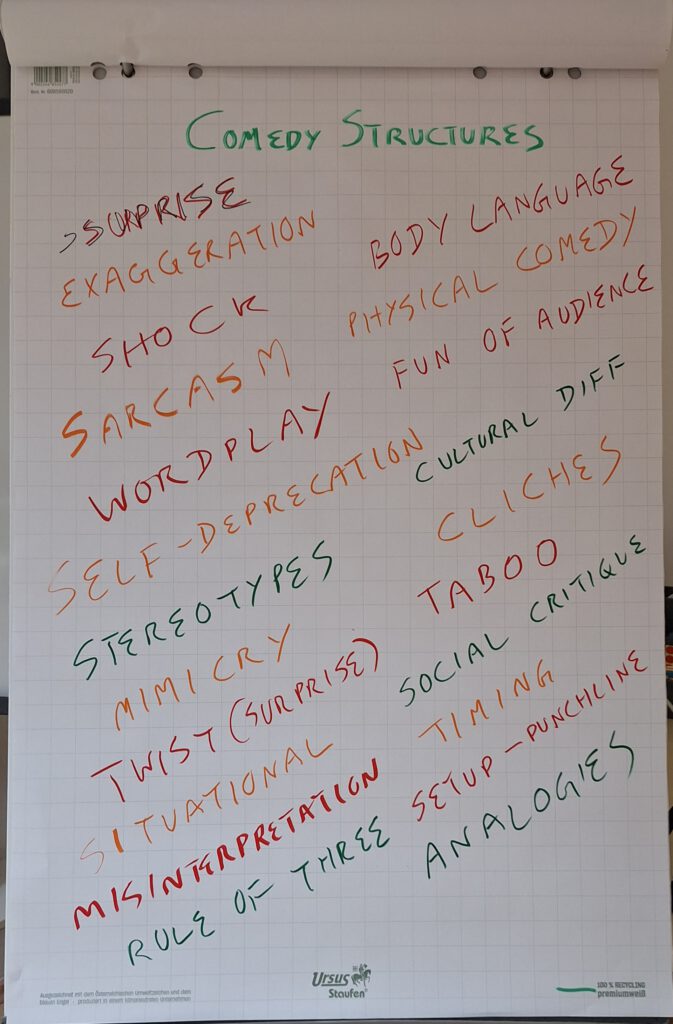 COMEDY STRUCTURES
SURPRISE
EXAGGERATION
SHOCK
SARCASM
WORDPLAY
SELF-DEPRECATION
STEREOTYPES
MIMICRY
TWIST (SURPRISE)
SITUATIONAL
MISINTERPRETATION
RULE OF THREE
BODY LANGUAGE
PHYSICAL COMEDY
FUN OF AUDIENCE
CULTURAL DIFF
CLICHES
TABOO
SOCIAL CRITIQUE
TIMING
SETUP - PUNCHLINE
ANALOGIES
Ausgezeichnet mit dem Österreichischen Umweltzeichen und dem
blauen Engel | produziert in einem klimaneutralen Unternehmen
Ursus
Staufen®
100 % RECYCLING
premiumweiß